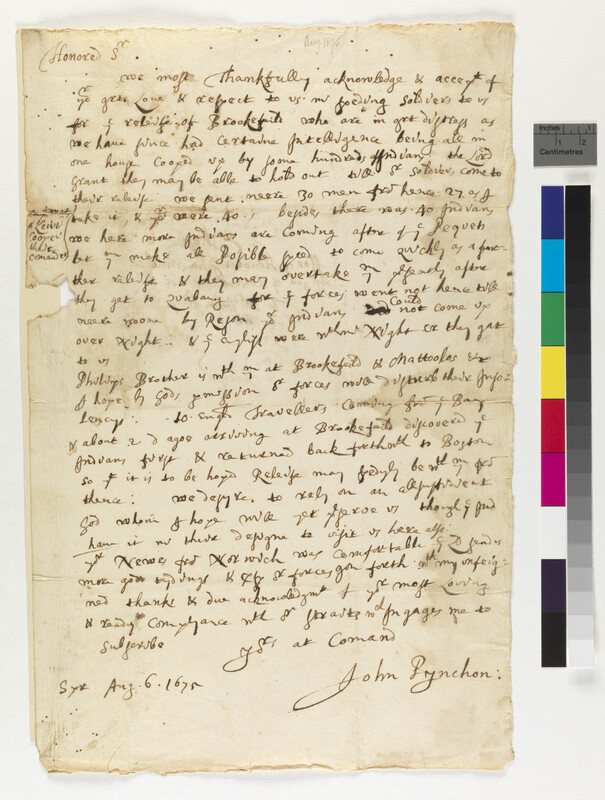 Aug 1675
Honored Sr
we most Thankfully acknowledge & accept of
yr grt Love & respect to us in speeding Soldiers to us
for ye releise of Brookefeild who are in grt distress as
we have since had Certaine Intelligence being all in
one house Cooped up by some hundreds Indians the Lord
Grant they may be able to hold out till or soldiers come to
their releise we sent neere 30 men fro hence 27 as I
take it & yor were 40: besides there was 40 Indians
Lieut
Cooper
their
comander
we here more Indians are coming after of ye Pequets
let ym make all Posible speed to come quickly as a fur-
ther releise & they may overtake ym after
they get to Quabaug for ye forces went not hence till
neere noone by Reson yr Indians could not come up
over Night & ye English were wthin Night er they gat
to us
Philips Brother is wth ym at Brookefeild & Mattoolos &c
I hope by Gods pmission or forces will disturb their Inso-
lencys: to English Travellers Coming fro ye Bay
& about 2 d agoe arriving at Brookefeild discovered ye
Indians first & returned back forthwth to Boston
so yt it is to be hoped Releise may speedyly be wth ym fro
thence: we desyre to rely on an allsufficient
God whom I hope will yet pserve us though ye Ind
have it in their designe to visit us here also:
yor Newes fro Norwich was Comfortable ye Ld send us
more good tydings & or forces gon forth wth my unfeig-
ned thanks & due acknowledgmt of yor most Loving
& ready Complyance wth or straits wch Ingages me to
subscribe
yors at Comand
John Pynchon:
Spr Aug. 6. 1675
Inches
1
2
Centimetres